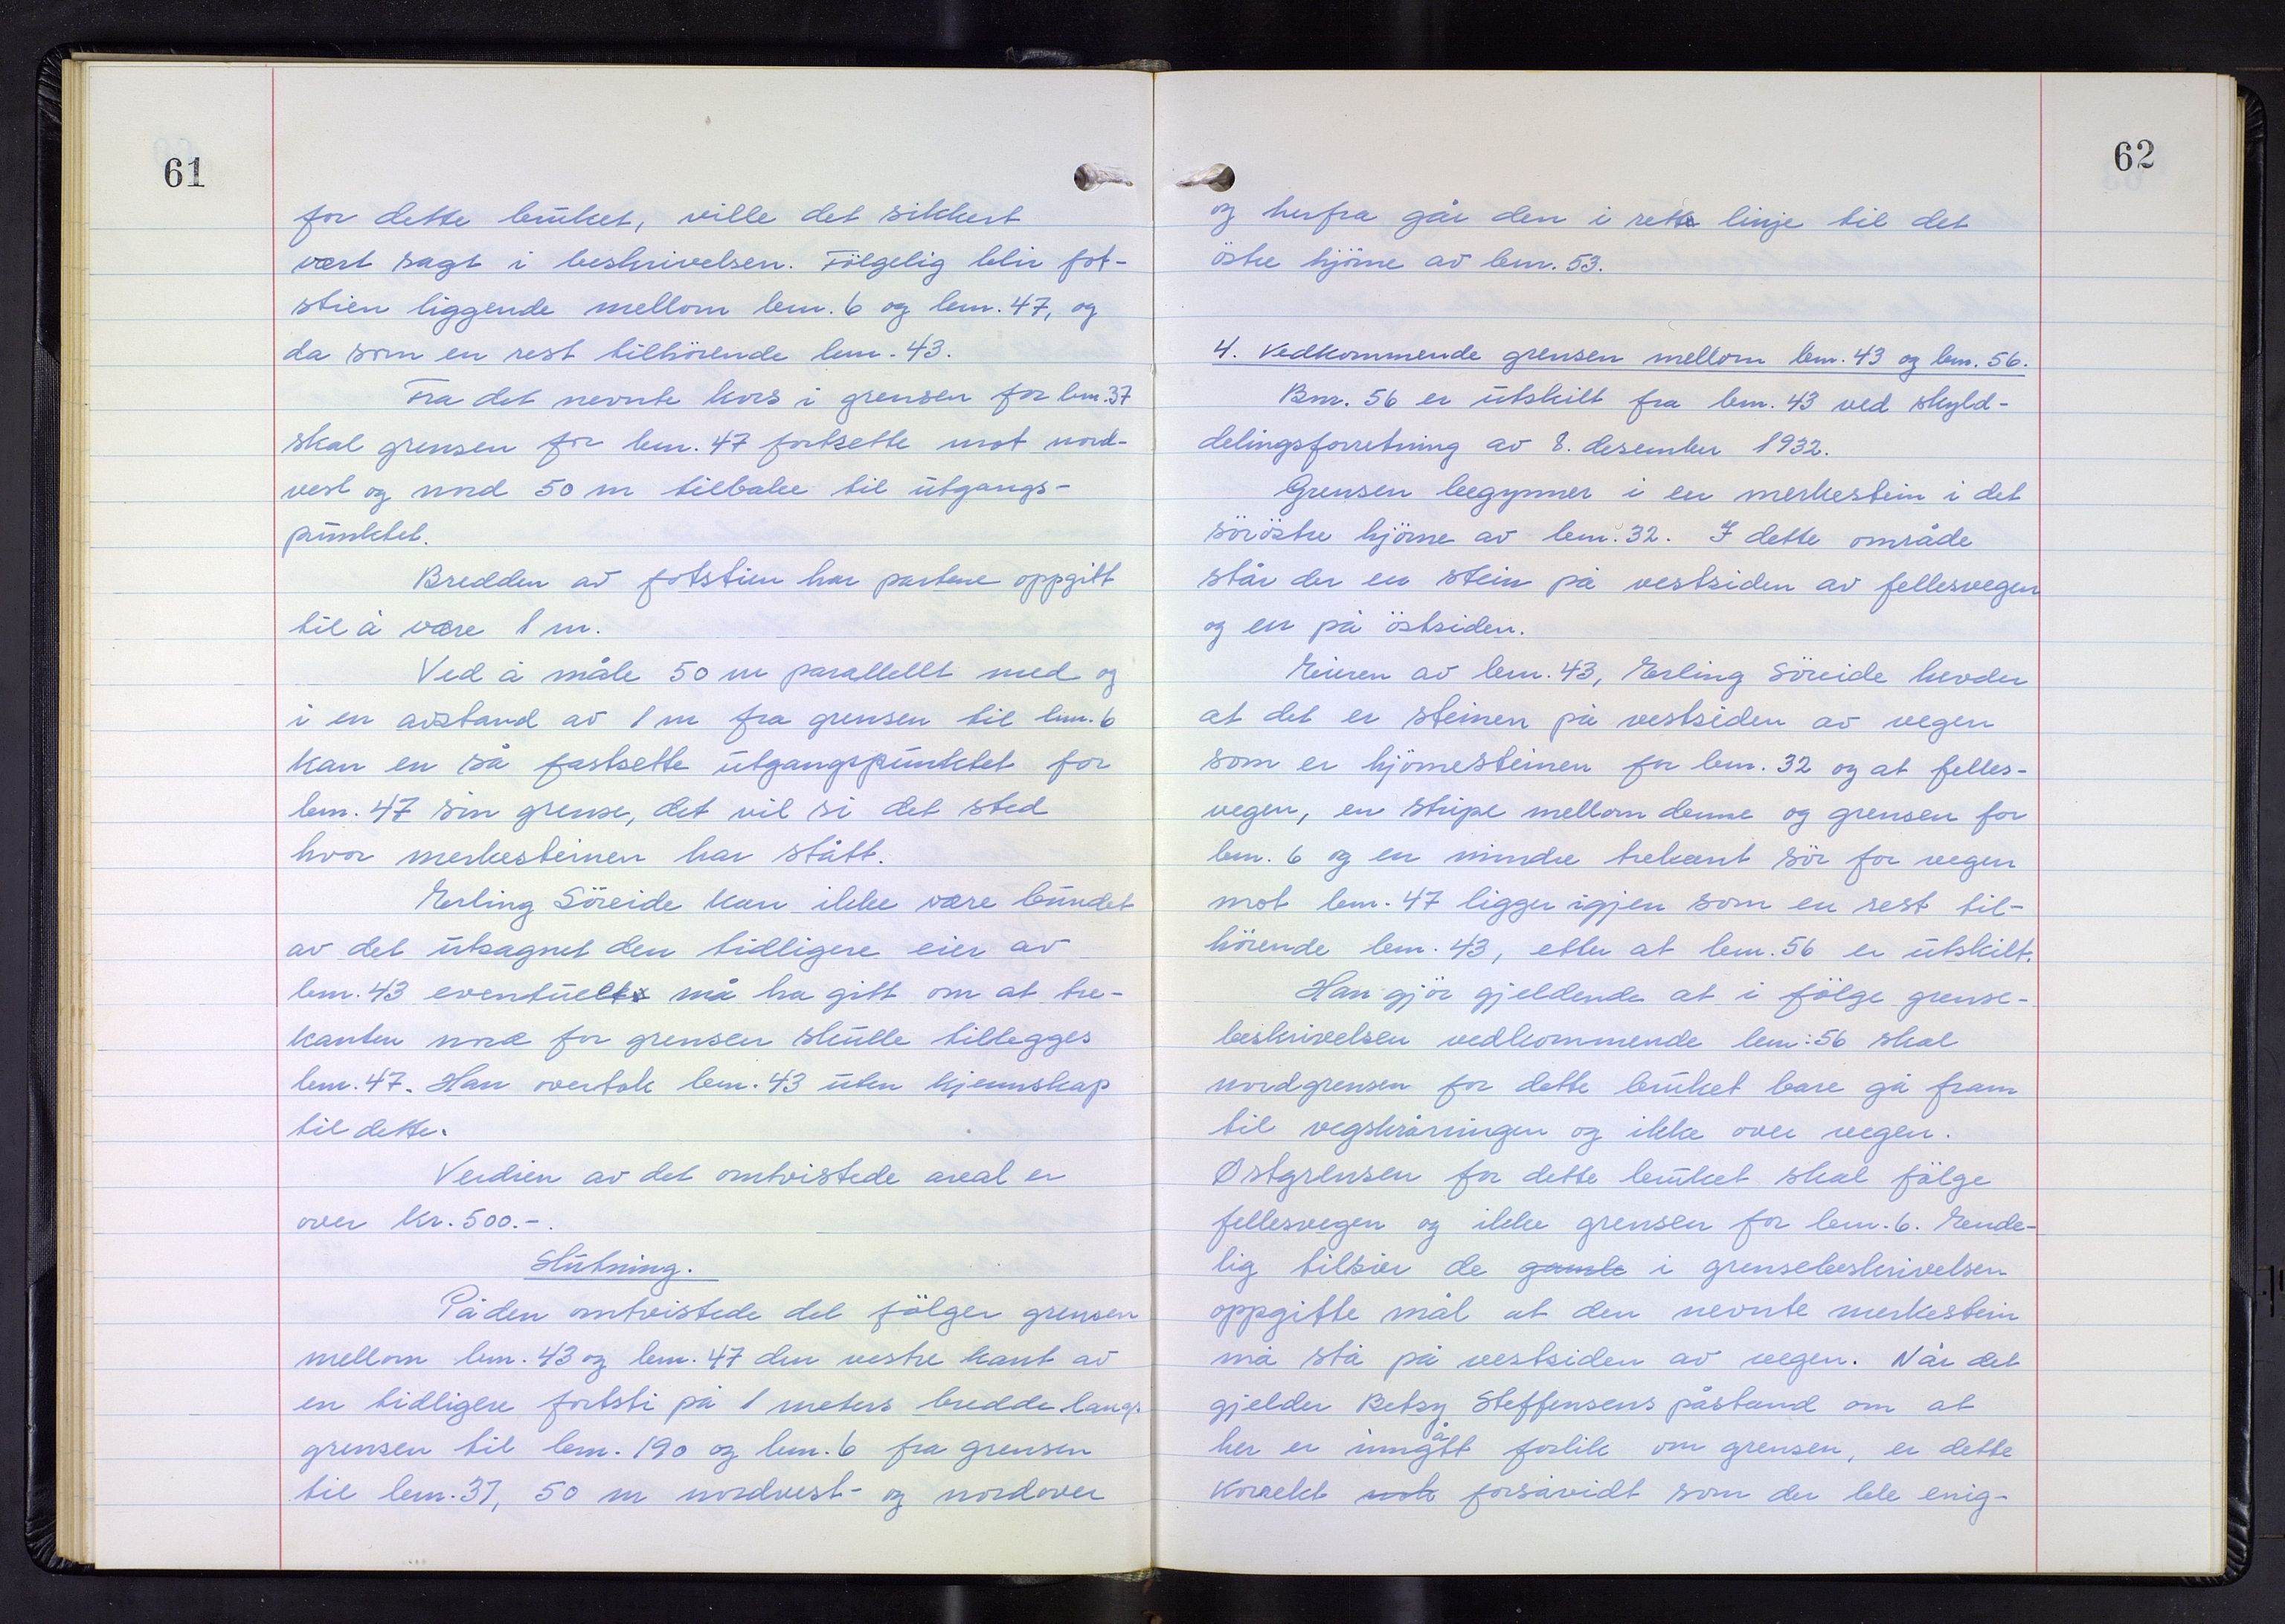 61
for dette bruket, ville det sikkert
vært sagt i beskrivelsen. Følgelig blir fot-
stien liggende mellom bnr. 6 og bnr. 47, og
da som en rest tilhörende bnr. 43.
Fra det nevnte kors i grensen for bnr. 37
skal grensen for bnr. 47 fortsette mot nord-
vest og nord 50 m tilbake til utgangs-
punktet.
Bredden av fotstien har partene oppgitt
til å være 1 m.
Ved å måle 50 m parallellt med og
i en avstand av 1 m fra grensen til bnr. 6
kan en så fastsette utgangspunktet for
bnr. 47 sin grense, det vil si det sted
hvor merkesteinen har stått.
Erling Söreide kan ikke være bundet
av det utsagnet den tidligere eier av
bnr. 43 eventuelt må ha gitt om at tre-
kanten nord for grensen skulle tillegges
bnr. 47. Han overtok bnr. 43 uten kjennskap
til dette.
Verdien av det omtvistede areal er
over kr. 500.-.
Slutning.
På den omtvistede del fölger grensen
mellom bnr. 43 og bnr. 47 den vestre kant av
en tidligere fortsti på 1 meters bredde langs
grensen til bnr. 190 og bnr. 6 fra grensen
til bnr. 37, 50 m nordvest- og nordover
62
og herfra går den i rett linje til det
östre hjörne av bnr. 53.
4. Vedkommende grensen mellom bnr. 43 og bnr. 56.
Bnr. 56 er utskilt fra bnr. 43 ved skyld-
delingsforretning av 8. desember 1932.
Grensen begynner i en merkestein i det
söröstre hjörne av bnr. 32. I dette område
står der en stein på vestsiden av fellesvegen
og en på östsiden.
Eieren av bnr. 43, Erling Söreide hevder
at det er steinen på vestsiden av vegen
som er hjörnesteinen for bnr. 32 og at felles-
vegen, en stripe mellom denne og grensen for
bnr. 6 og en mindre trekant sör for vegen
mot bnr. 47 ligger igjen som en rest til-
hörende bnr. 43, etter at bnr. 56 er utskilt.
Han gjör gjeldende at i fölge grense-
beskrivelsen vedkommende bnr. 56 skal
nordgrensen for dette bruket bare gå fram
til vegskråningen og ikke over vegen.
Østgrensen for dette bruket skal fölge
fellesvegen og ikke grensen for bnr. 6. Ende-
lig tilsier de gamle i grensebeskrivelsen
oppgitte mål at den nevnte merkestein
må stå på vestsiden av vegen. Når det
gjelder Betsy Steffensens påstand om at
her er inngått forlik om grensen, er dette
korrekt nok forsåvidt som der ble enig-